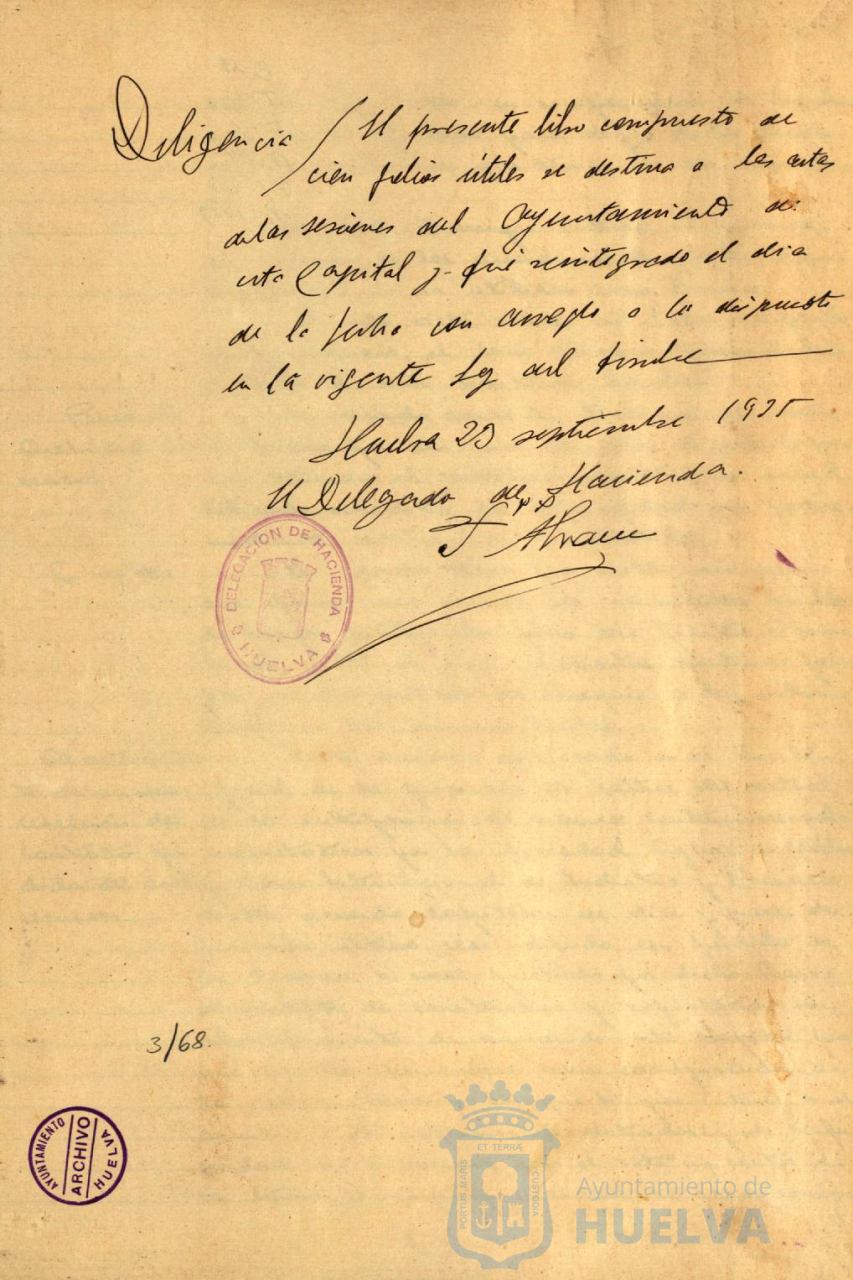 Diligencia / El presente libro compuesto de
cien folios útiles se destina a las actas
de las sesiones del Ayuntamiento de
esta Capital y fué reintegrado el dia
de la fecha con arreglo a lo dispuesto
en la vigente Ley del timbre
Huelva 23 septiembre 1935
El Delegado de Hacienda.
DELEGACION DE HACIENDA
HUELVA
3/68.
AYUNTAMIENTO
ARCHIVO
HUELVA
ET TERRÆ
PORTUS MARIS
CUSTODIA
Ayuntamiento de
HUELVA